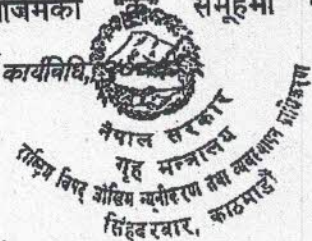 जिमका समूहमा
कार्यविधि,
नेपाल सरकार
गृह मन्त्रालय
राष्ट्रिय विपद जोखिम न्यूनीकरण तथा व्यवस्थापन प्राधिकरण
सिंहदरबार, काठमाडौं